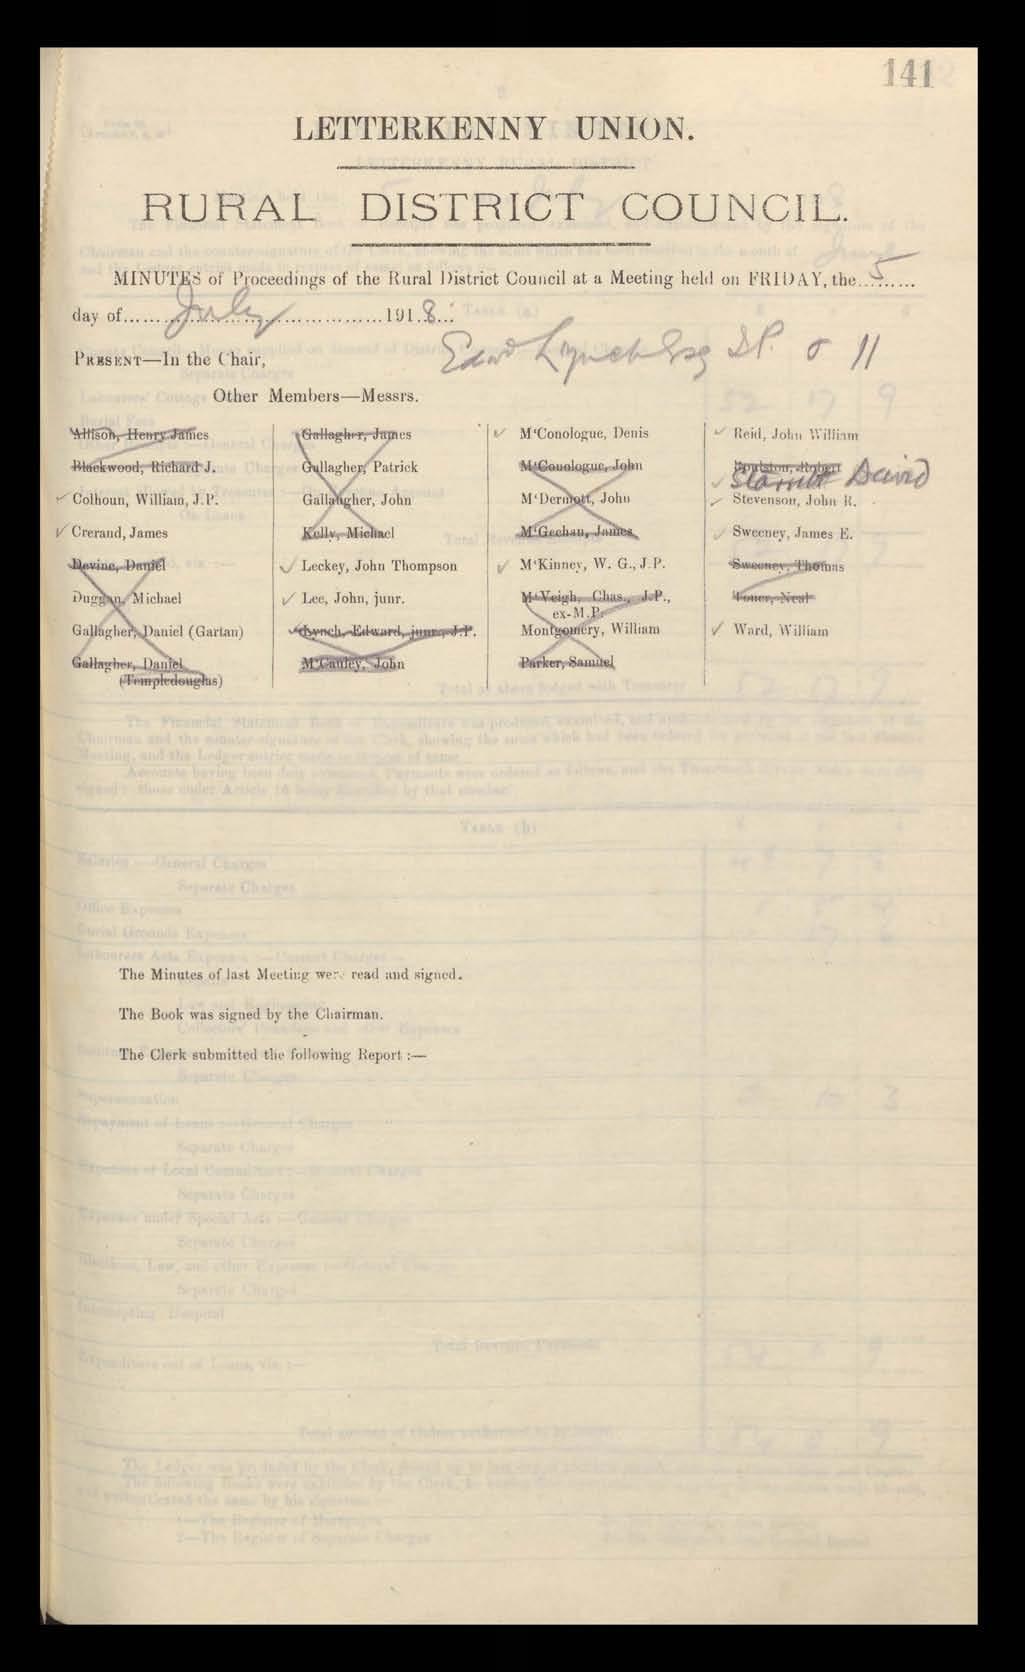 141
LETTERKENNY UNION.
RURAL DISTRICT COUNCIL.
MINUTES of Proceedings of the Rural District Council at a Meeting held on FRIDAY, the 5
day of July 1918.
PRESENT—In the Chair, Edwd Lynch Esq J.P. & 11
Other Members—Messrs.
Allison, Henry James
Blackwood, Richard J.
✓ Colhoun, William, J.P.
✓ Crerand, James
Devine, Daniel
Duggan, Michael
Gallagher, Daniel (Gartan)
Gallagher, Daniel
(Templedouglas)
Gallagher, James
Gallagher, Patrick
Gallagher, John
Kelly, Michael
✓ Leckey, John Thompson
✓ Lee, John, junr.
✓ Lynch, Edward, junr., J.P.
M'Cauley, John
✓ M'Conologue, Denis
M'Conologue, John
M'Dermott, John
M'Gechan, James
✓ M'Kinney, W. G., J.P.
M'Veigh, Chas., J.P.,
ex-M.P.
Montgomery, William
Parker, Samuel
✓ Reid, John William
Roulston, Robert
✓ Starritt David
✓ Stevenson, John R.
✓ Sweeney, James E.
Sweeney, Thomas
Toner, Neal
✓ Ward, William
The Minutes of last Meeting were read and signed.
The Book was signed by the Chairman.
The Clerk submitted the following Report :—